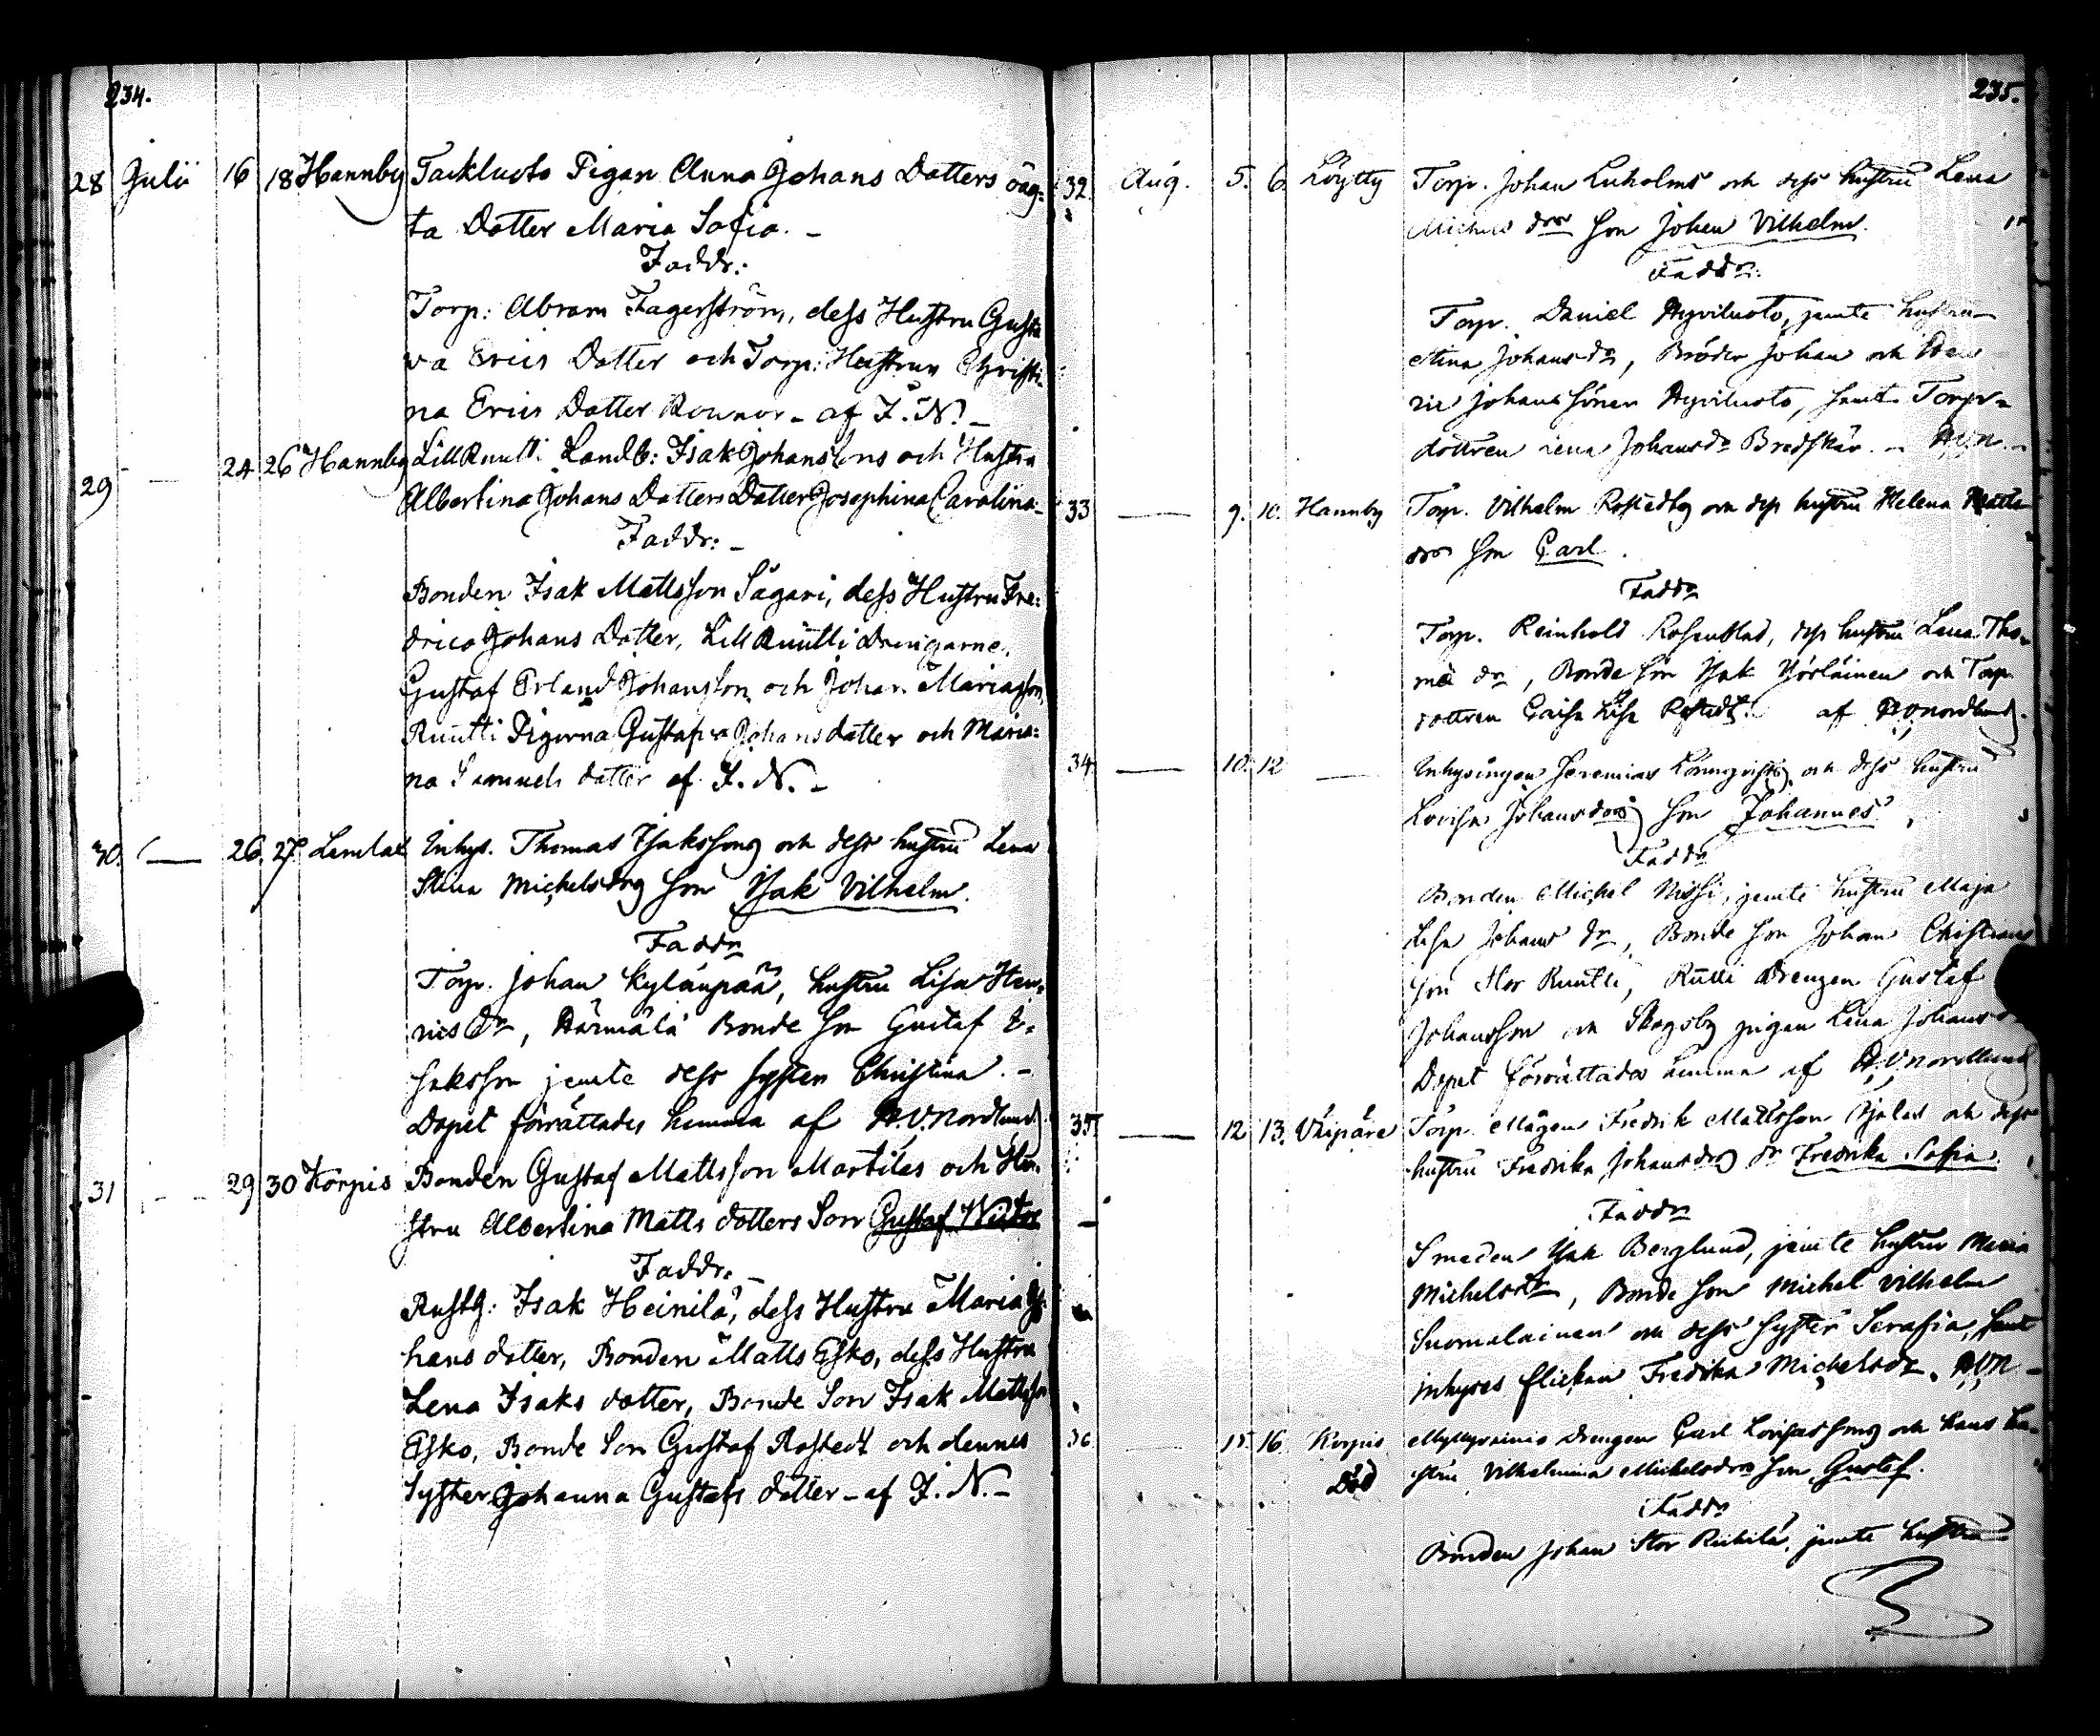 234.
28 Julii 16 18 Hannby Tackluoto Pigan Anna Johans Dotters oäg=
ta Dotter Maria Sofia. -
Faddr:
Torp: Abram Fagerström, dess Hustru Gusta
va Erics Dotter och Torp: Hustrun Christi-
na Erics Dotter Rounor - af I. N. -
29 — 24 26 Hannby Lill Ruutti Landb: Isak Johanssons och Hustru
Albertina Johans Dotters Dotter Josephina Carolina. -
Faddr: -
Bonden Isak Mattsson Sägari, dess Hustru Fre=
drica Johans Dotter, Lill Ruutti Drengarne,
Gustaf Erland Johansson och Johan Mariasson,
Ruutti Pigorna Gustafva Johansdotter och Maria=
na Samuels dotter af I. N. -
30. — 26. 27. Lemlax Inhys. Thomas Isakssons och dess hustru Lena
Stina Michelsdrs son Isak Vilhelm.
Faddr
Torp. Johan Kylänpää, hustru Lisa Hen-
rics dr, Härmälä Bonde son Gustaf I-
saksson jemte dess syster Christina. -
Dopet förrättades hemma af A. V. Nordlund.
31 — 29 30 Korpis Bonden Gustaf Mattsson Martilas och Hu-
stru Albertina Matts dotters Son Gustaf Wiktor
Faddr. -
Rustg: Isak Heinilä, dess Hustru Maria Jo
hans dotter, Bonden Matts Esko, dess Hustru
Lena Isaks dotter, Bonde Son Isak Mattsson
Esko, Bonde Son Gustaf Rostedt och dennes
Syster Johanna Gustafs dotter - af I. N. -
235.
32. Aug. 5. 6. Löytty Torp. Johan Luholms och dess hustru Lena
Michels drs son Johan Vilhelm.
Faddr:
Torp. Daniel Hyviluoto, jemte hustru
Stina Johansdr, Bröder Johan och
ric Johans söner Hyviluoto, samt Torpr-
dottren Lena Johansdr Bredskär. - A.V.N. -
33 — 9. 10. Hannby Torp. Vilhelm Rostedts och dess hustru Helena Matts
drs son Carl.
Faddr
Torp. Reinhold Rosenblad, dess hustru Lena Tho-
mä dr, Bonde son Isak Yörläinen och Torp.
dottren Caisa Lisa Rostedt. af A. V. Nordlund.
34 — 10. 12 — Inhysingen Jeremias Lönnqvists och dess hustru
Lovisa Johansdrs son Johannes.
Faddr
Bonden Michel Nissi, jemte hustru Maja
Lisa Johans dr, Bonde son Johan Christians
son Stor Ruutti, Rutti Drengen Gustaf
Johansson och Skogsby pigan Lena Johans dr
Dopet förrättades hemma af A. V. Nordlund
35. — 12 13. Vuipäre Torp. Mågen Fredrik Mattsson Sjelas och dess
hustru Fredrika Johansdrs dr Fredrika Sofia.
Faddr
Smeden Isak Berglund, jemte hustru Maria
Michelsdr, Bonde son Michel Vilhelm
Suomalainen och dess syster Serafia, samt
inhyses flickan Fredrika Michelsdr. A.V.N. -
36 — 15. 16. Korpis Myllyrinnis Drengen Carl Lovisassons och hans hu-
Död stru Vilhelmina Mickelsdrs son Gustaf.
Faddr
Bonden Johan Stor Rickilä, jemte hustru